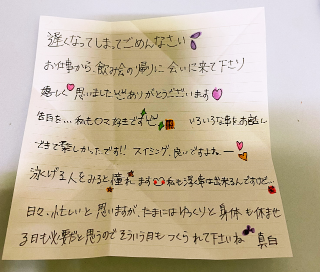 遅くなってしまってごめんなさい
お仕事から、飲み会の帰りに会いに来て下さり
嬉しく思いましたありがとうございます
私も 大好きです いろいろな事お話し
できて楽しかったです!! スイミング、良いですよねー
泳げる人をみると憧れます 私も浮く事は出来るんですけど…
日々、忙しいと思いますが、たまにはゆっくりと身体も休ませ
る日も必要だと思うのでそういう日もつくられて下さいね 真白